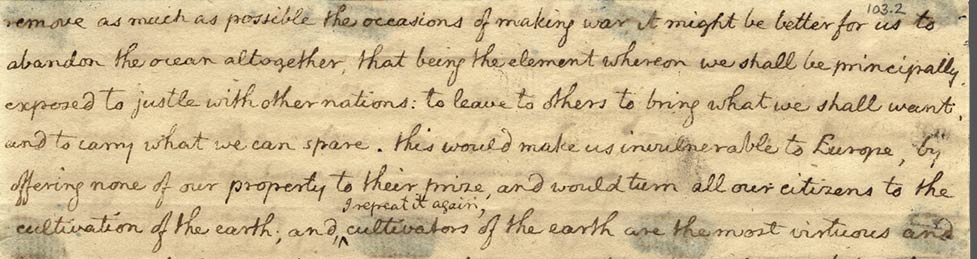 103.2
remove as much as possible the occasions of making war it might be better for us to
abandon the ocean altogether, that being the element whereon we shall be principally
exposed to justle with other nations: to leave to others to bring what we shall want,
and to carry what we can spare. this would make us invulnerable to Europe, by
offering none of our property to their prize, and would turn all our citizens to the
I repeat it again,
cultivation of the earth; and, cultivators of the earth are the most virtuous and